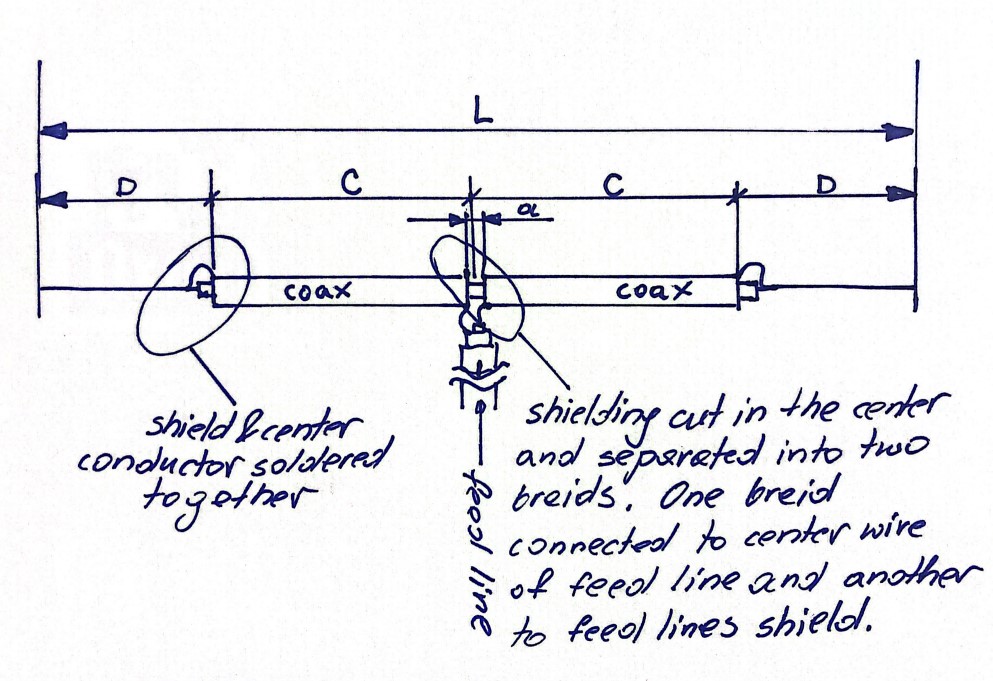 L
D C C D
a
coax coax
shield & center
conductor soldered
together
feed line
shielding cut in the center
and separated into two
breids. One breid
connected to center wire
of feed line and another
to feed lines shield.